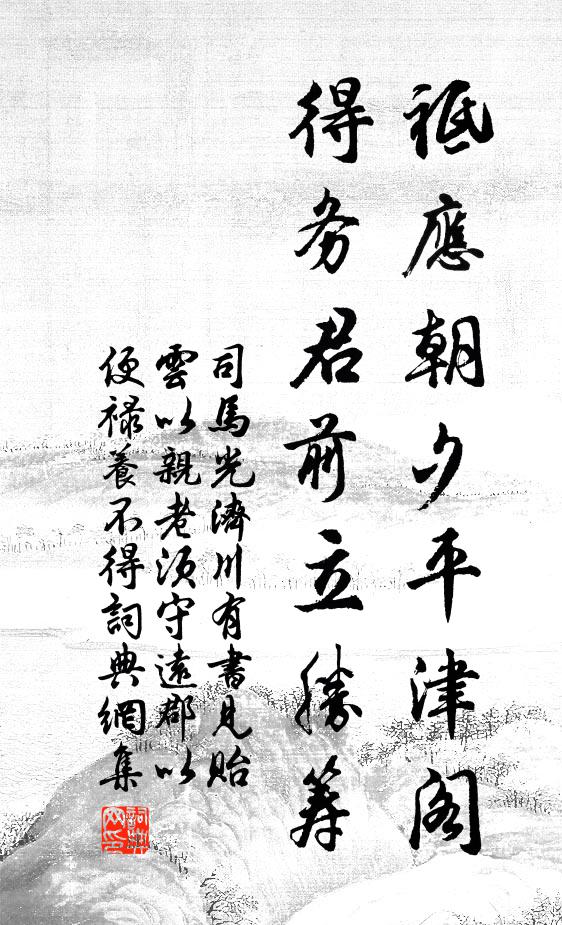 祗應朝夕平津閣
得务君前立勝筹
司馬光濟川有書見貽
雲以親老須守遠郡以
便禄養不得詞典網集